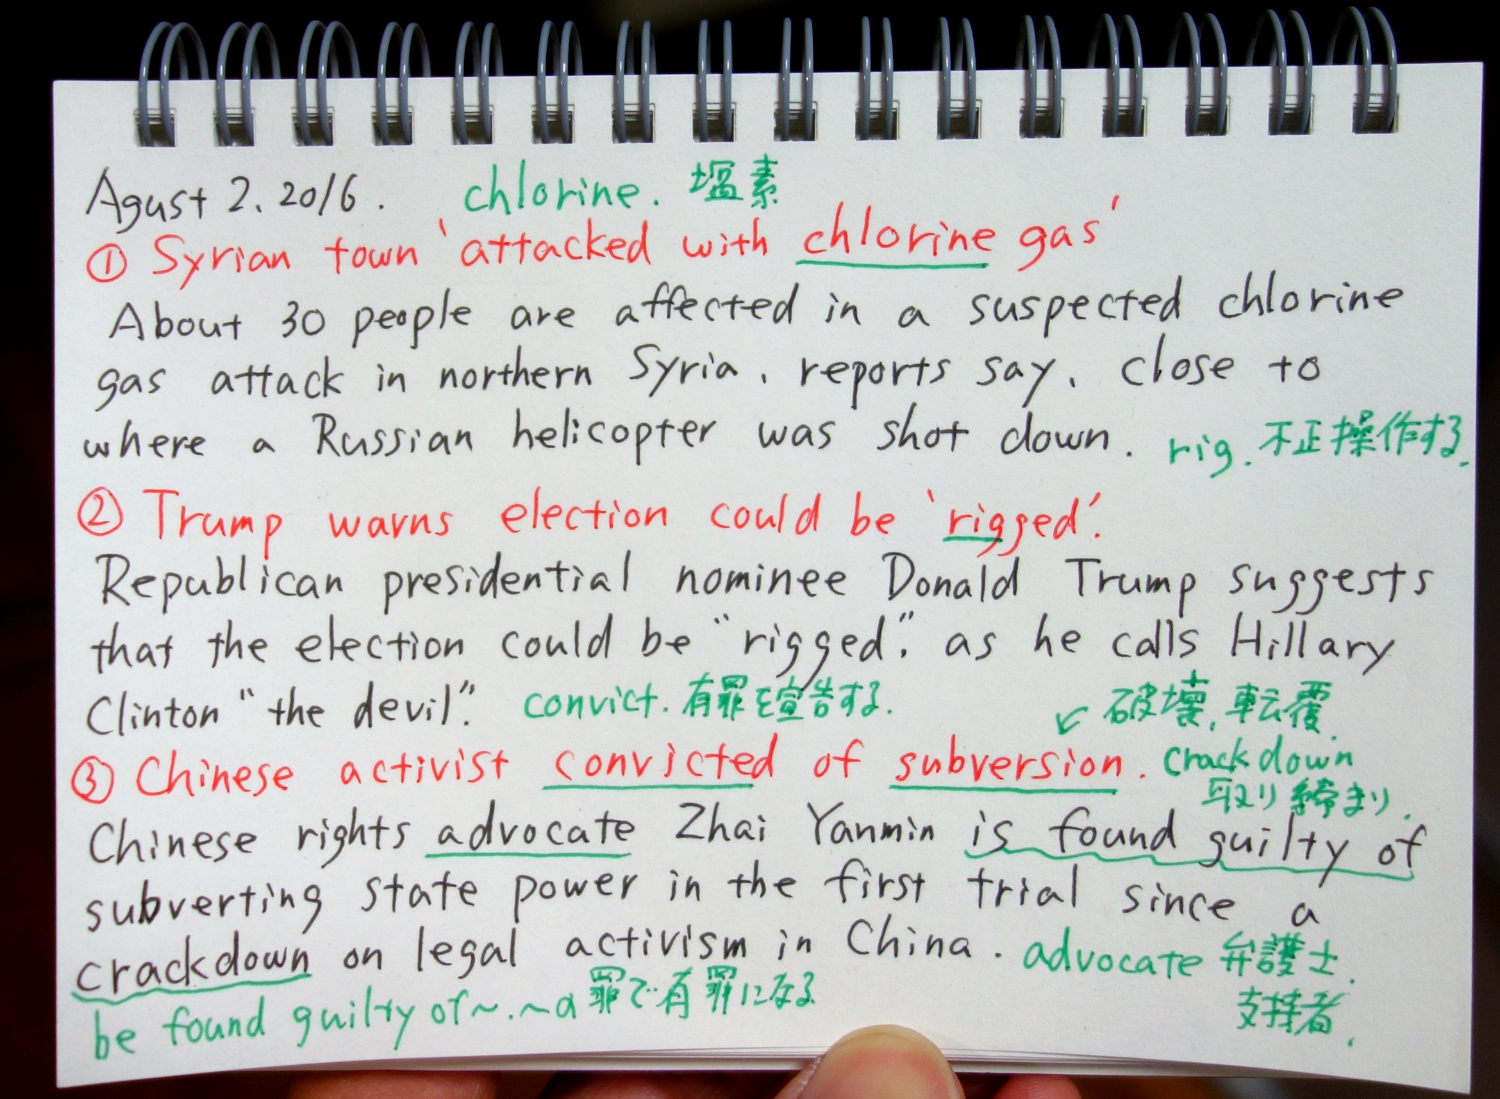 Agust 2, 2016. chlorine. 塩素
① Syrian town 'attacked with chlorine gas'
About 30 people are affected in a suspected chlorine
gas attack in northern Syria, reports say, close to
where a Russian helicopter was shot down. rig. 不正操作する.
② Trump warns election could be 'rigged'.
Republican presidential nominee Donald Trump suggests
that the election could be "rigged", as he calls Hillary
Clinton "the devil". convict. 有罪を宣告する. ↙ 破壊, 転覆.
③ Chinese activist convicted of subversion. crackdown
取り締まり.
Chinese rights advocate Zhai Yanmin is found guilty of
subverting state power in the first trial since a
crackdown on legal activism in China. advocate 弁護士.
支持者.
be found guilty of ~. ~の罪で有罪になる